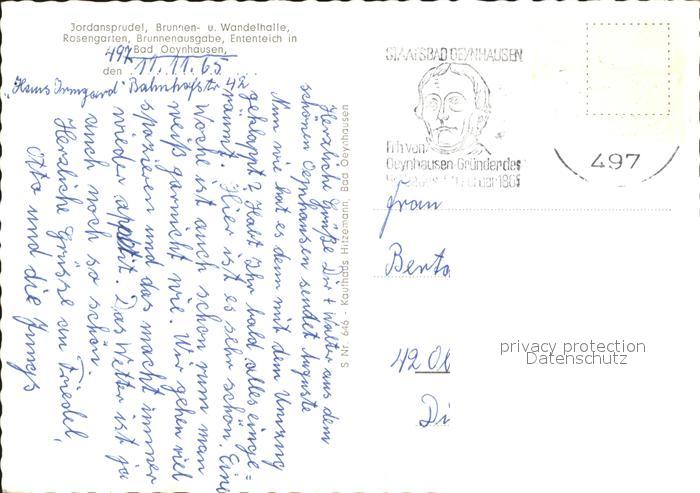 Jordansprudel, Brunnen- u. Wandelhalle,
Rosengarten, Brunnenausgabe, Ententeich in
497 Bad Oeynhausen,
den 11.11.65
„Haus Irmgard“ Bahnhofstr 42
Herzliche Grüße Dir + Walter aus dem
schönen Oeynhausen sendet Auguste
Nun wie hat es denn mit dem Umzug
geklappt? Habt Ihr bald alles einge=
räumt. Hier ist es sehr schön. Eine
Woche ist auch schon rum man
weiß garnicht wie. Wir gehen viel
spazieren und das macht immer
wieder appetit. Das Wetter ist ja
auch noch so schön.
Herzliche Grüsse an Friedel,
Otto und die Jungs
S Nr. 646 - Kaufhaus Hitzemann, Bad Oeynhausen
STAATSBAD OEYNHAUSEN
Frh. von
Oeynhausen-Gründer des
497
Frau
Berta
42 Ol
Di
privacy protection
Datenschutz